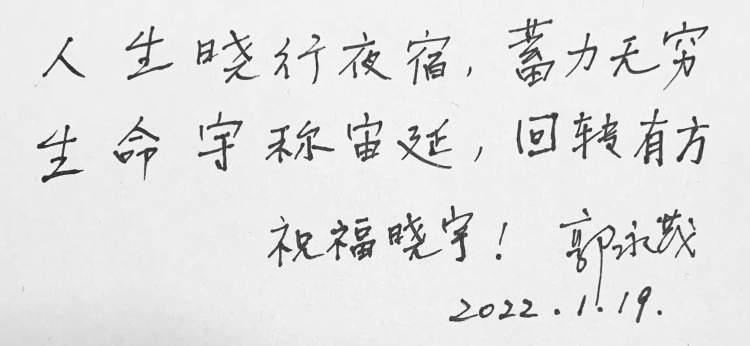 人生晓行夜宿,蓄力无穷
生命宇称宙延,回转有方
祝福晓宇! 郭永茂
2022.1.19.